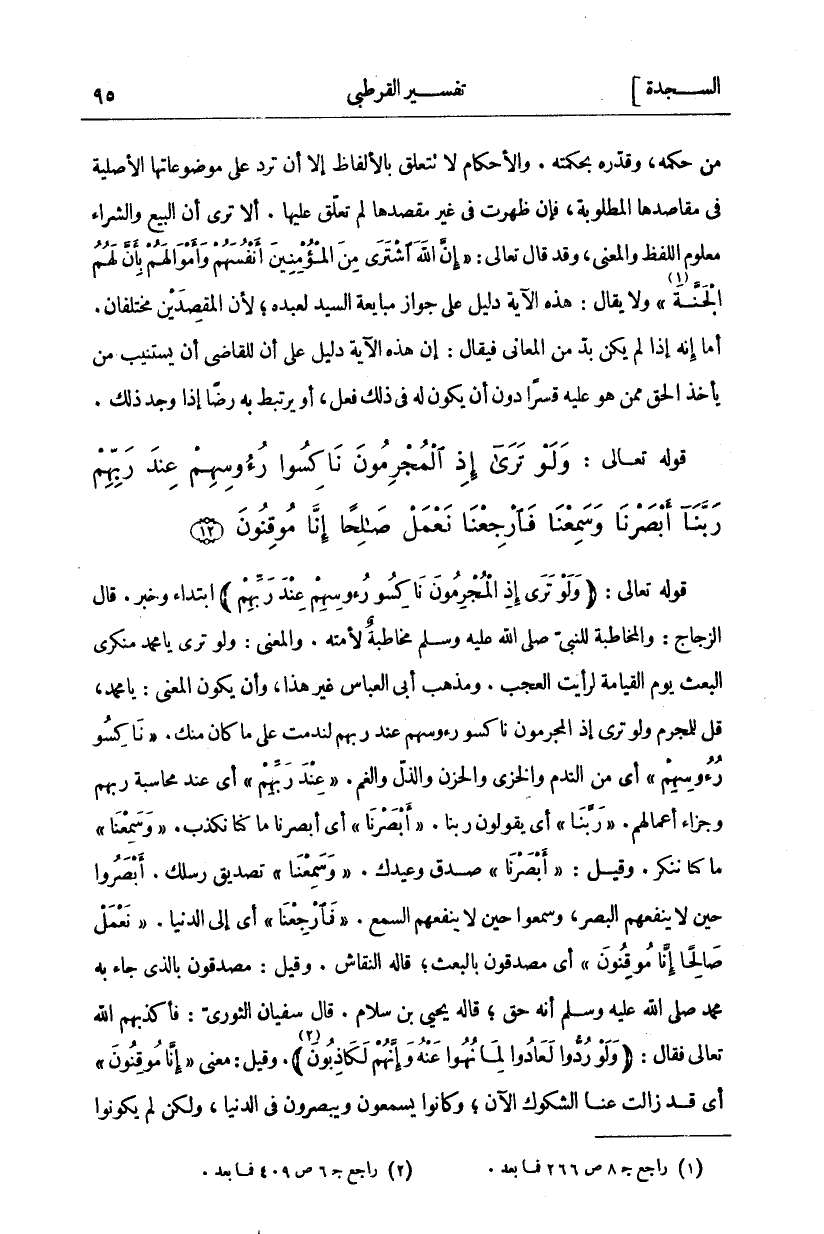 السـجدة ] تفسـير القرطبى ٩٥
من حكمه، وقدّره بحكمته . والأحكام لا تتعلق بالألفاظ إلا أن ترد على موضوعاتها الأصلية
فى مقاصدها المطلوبة، فإن ظهرت فى غير مقصدها لم تعلّق عليها . ألا ترى أن البيع والشراء
معلوم اللفظ والمعنى، وقد قال تعالى: « إِنَّ اللهَ ٱشْتَرَى مِنَ الْمُؤْمِنِينَ أَنْفُسَهُمْ وَأَمْوَالَهُمْ بِأَنَّ لَهُمُ
الْجَنَّـةَ (١) » ولا يقال : هذه الآية دليل على جواز مبايعة السيد لعبده ؛ لأن المقصِدَيْن مختلفان .
أما إنه إذا لم يكن بدّ من المعانى فيقال : إن هذه الآية دليل على أن للقاضى أن يستنيب من
يأخذ الحق ممن هو عليه قسرًا دون أن يكون له فى ذلك فعل، أو يرتبط به رضًا إذا وجد ذلك .
قوله تعـالى : وَلَوْ تَرَىٰٓ إِذِ ٱلْمُجْرِمُونَ نَاكِسُوا رُءُوسِهِمْ عِندَ رَبِّهِمْ
رَبَّنَآ أَبْصَرْنَا وَسَمِعْنَا فَٱرْجِعْنَا نَعْمَلْ صَـٰلِحًا إِنَّا مُوقِنُونَ ﴿١٢﴾
قوله تعالى : ﴿ وَلَوْ تَرَى إِذِ الْمُجْرِمُونَ نَاكِسُو رُءوسِهِمْ عِنْدَ رَبِّهِمْ ﴾ ابتداء وخبر . قال
الزجاج : والمخاطبة للنبىّ صلى الله عليه وسـلم مخاطبةٌ لأمته . والمعنى : ولو ترى يامحمد منكرى
البعث يوم القيامة لرأيت العجب . ومذهب أبى العباس غير هذا، وأن يكون المعنى : يامحمد،
قل للمجرم ولو ترى إذ المجرمون ناكسو رءوسهم عند ربهم لندمت على ما كان منك . « نَاكِسُو
رُءُوسِهِمْ » أى من الندم والخزى والحزن والذلّ والغم . « عِنْدَ رَبِّهِمْ » أى عند محاسبة ربهم
وجزاء أعمالهم . « رَبَّنَا » أى يقولون ربنا . « أَبْصَرْنَا » أى أبصرنا ما كنا نكذب . « وَسَمِعْنَا »
ما كنا ننكر . وقيـل : « أَبْصَرْنَا » صـدق وعيدك . « وَسَمِعْنَا » تصديق رسلك . أَبْصَرُوا
حين لا ينفعهم البصر، وسمعوا حين لا ينفعهم السمع . « فَٱرْجِعْنَا » أى إلى الدنيا . « نَعْمَلْ
صَالِحًا إِنَّا مُوقِنُونَ » أى مصدقون بالبعث؛ قاله النقاش . وقيل : مصدقون بالذى جاء به
محمد صلى الله عليه وسـلم أنه حق ؛ قاله يحيى بن سلام . قال سفيان الثورىّ : فأكذبهم الله
تعالى فقال : ﴿ وَلَوْ رُدُّوا لَعَادُوا لِمَا نُهُوا عَنْهُ وَإِنَّهُمْ لَكَاذِبُونَ (٢) ﴾ . وقيل : معنى « إِنَّا مُوقِنُونَ »
أى قـد زالت عنـا الشكوك الآن ؛ وكانوا يسمعون ويبصرون فى الدنيا ، ولكن لم يكونوا
(١) راجع جـ ٨ ص ٢٦٦ فـا بعد . (٢) راجع جـ ٦ ص ٤٠٩ فـا بعد .